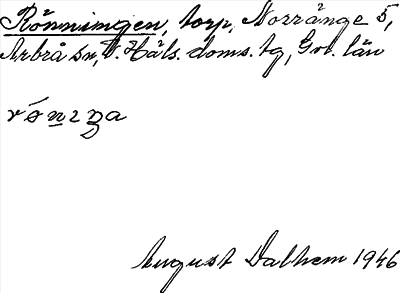 Rönningen, torp, Norränge 5,
Arbrå sn, V. Häls. doms. tg, Gvl. län
August Dalhem 1946